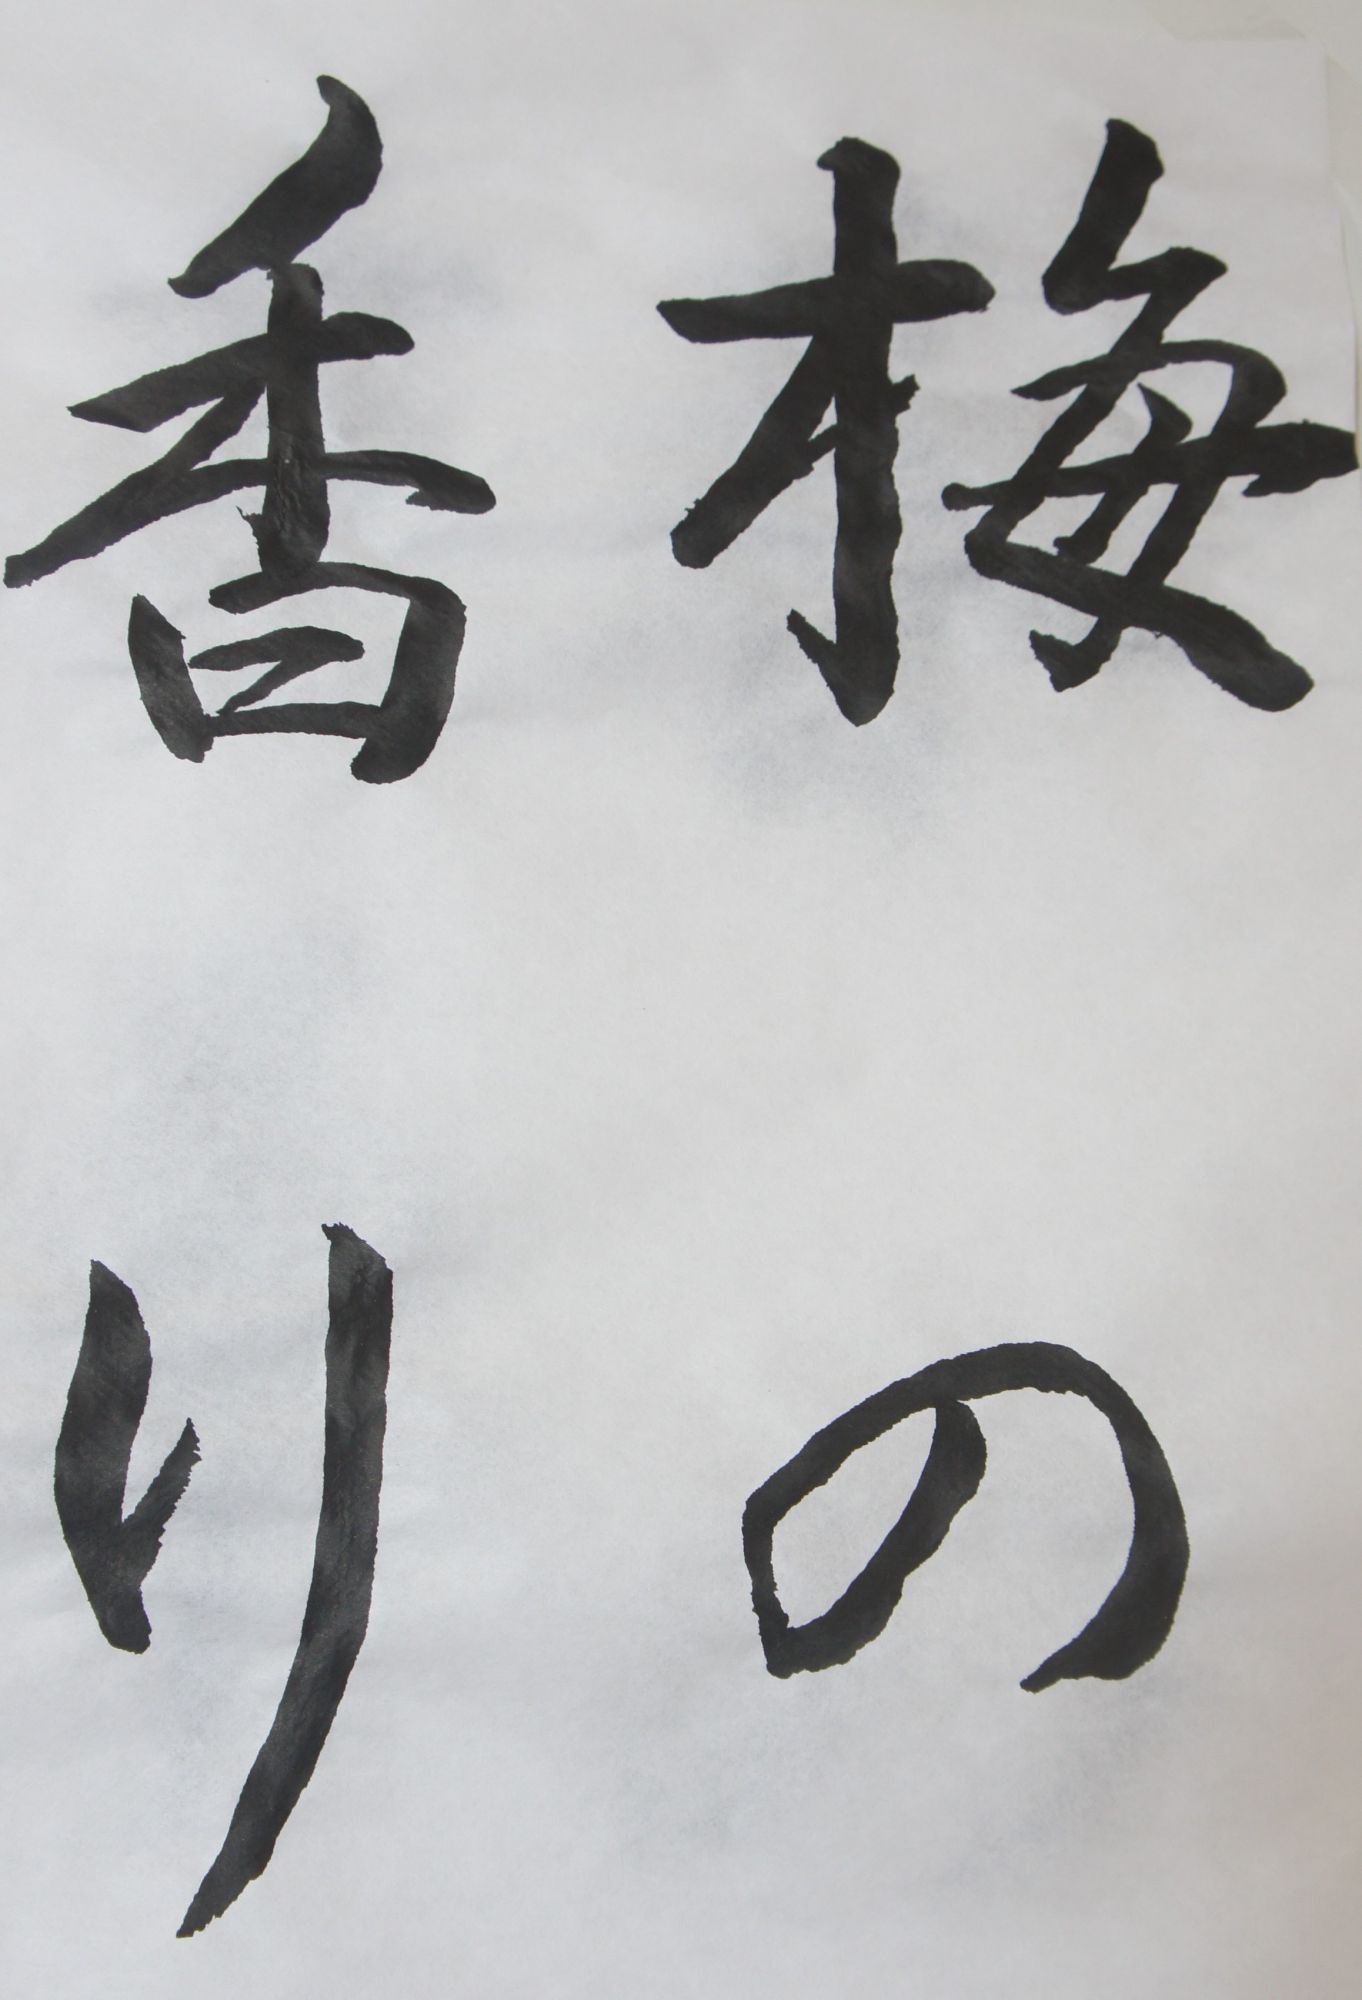 梅の
香り